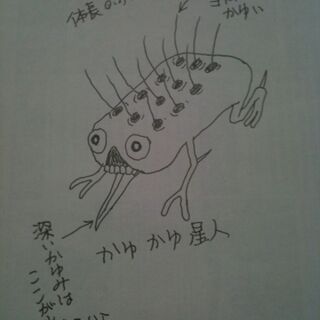 体長0.
かゆい
かゆかゆ星人
深いかゆみは
ここが